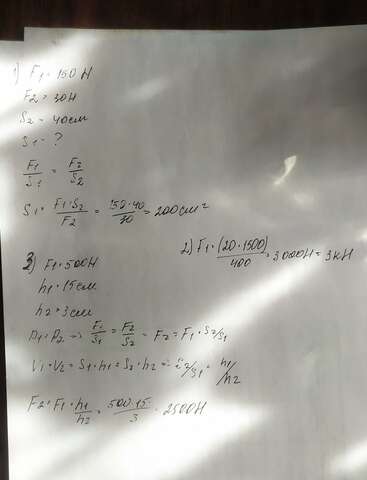 1) F1 = 150 H
F2 = 30H
S2 = 40см
S1 = ?
F1/S1 = F2/S2
S1 = F1·S2/F2 = 150·40/30 = 200см²
2) F1 = (20·1500)/400 = 3000H = 3кН
3) F1 = 500H
h1 = 15см
h2 = 3см
P1 = P2 → F1/S1 = F2/S2 = F2 = F1 · S2/S1
V1 = V2 = S1·h1 = S2·h2 = S2/S1 = h1/h2
F2 = F1 · h1/h2 = 500·15/3 = 2500H